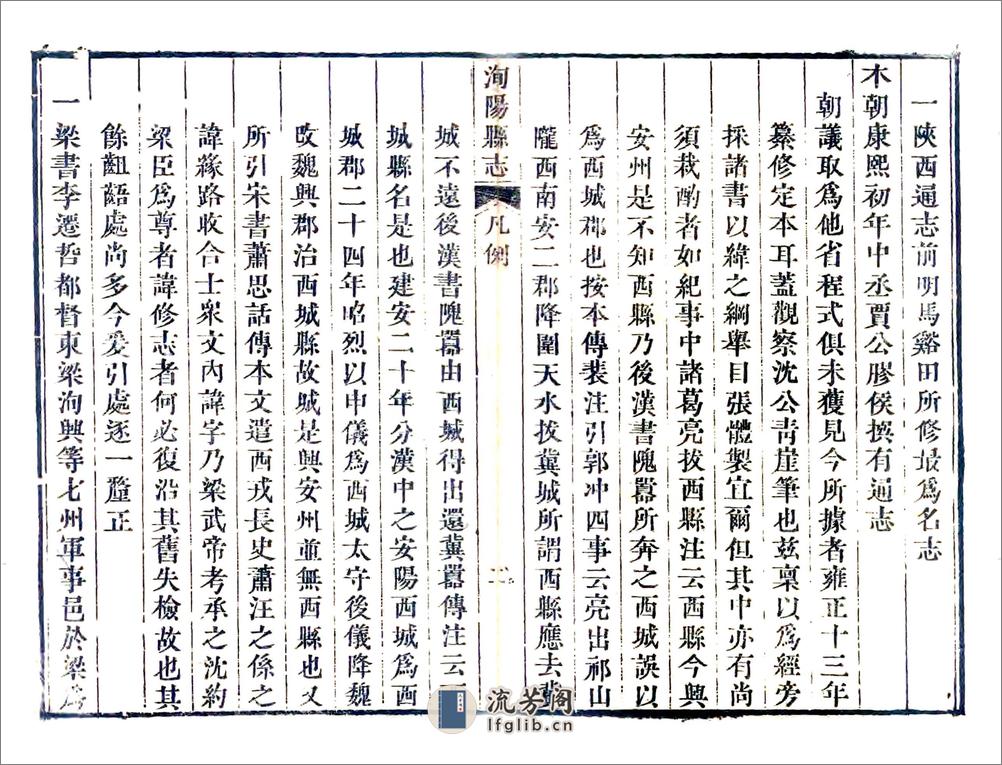 一陝西通志前明馬谿田所修最爲名志
本朝康熙初年中丞賈公膠侯撰有通志
朝議取爲他省程式俱未獲見今所據者雍正十三年
纂修定本耳蓋觀察沈公青崖筆也玆稟以爲經旁
採諸書以緯之綱舉目張體製宜爾但其中亦有尚
須裁酌者如紀事中諸葛亮拔西縣注云西縣今興
安州是不知西縣乃後漢書隗囂所奔之西城誤以
爲西城郡也按本傳裴注引郭冲四事云亮出祁山
隴西南安二郡降圍天水拔冀城所謂西縣應去冀
洵陽縣志
凡例
二
城不遠後漢書隗囂由西城得出還冀囂傳注云西
城縣名是也建安二十年分漢中之安陽西城爲西
城郡二十四年昭烈以申儀爲西城太守後儀降魏
改魏興郡治西城縣故城是興安州並無西縣也又
所引宋書蕭思話傳本文遣西戎長史蕭汪之係之
諱緣路收合士衆文內諱字乃梁武帝考承之沈約
梁臣爲尊者諱修志者何必復沿其舊失檢故也其
餘齟齬處尚多今爰引處逐一釐正
一梁書李遷哲都督東梁洵興等七州軍事邑於梁爲
流芳阁
lfglib.cn